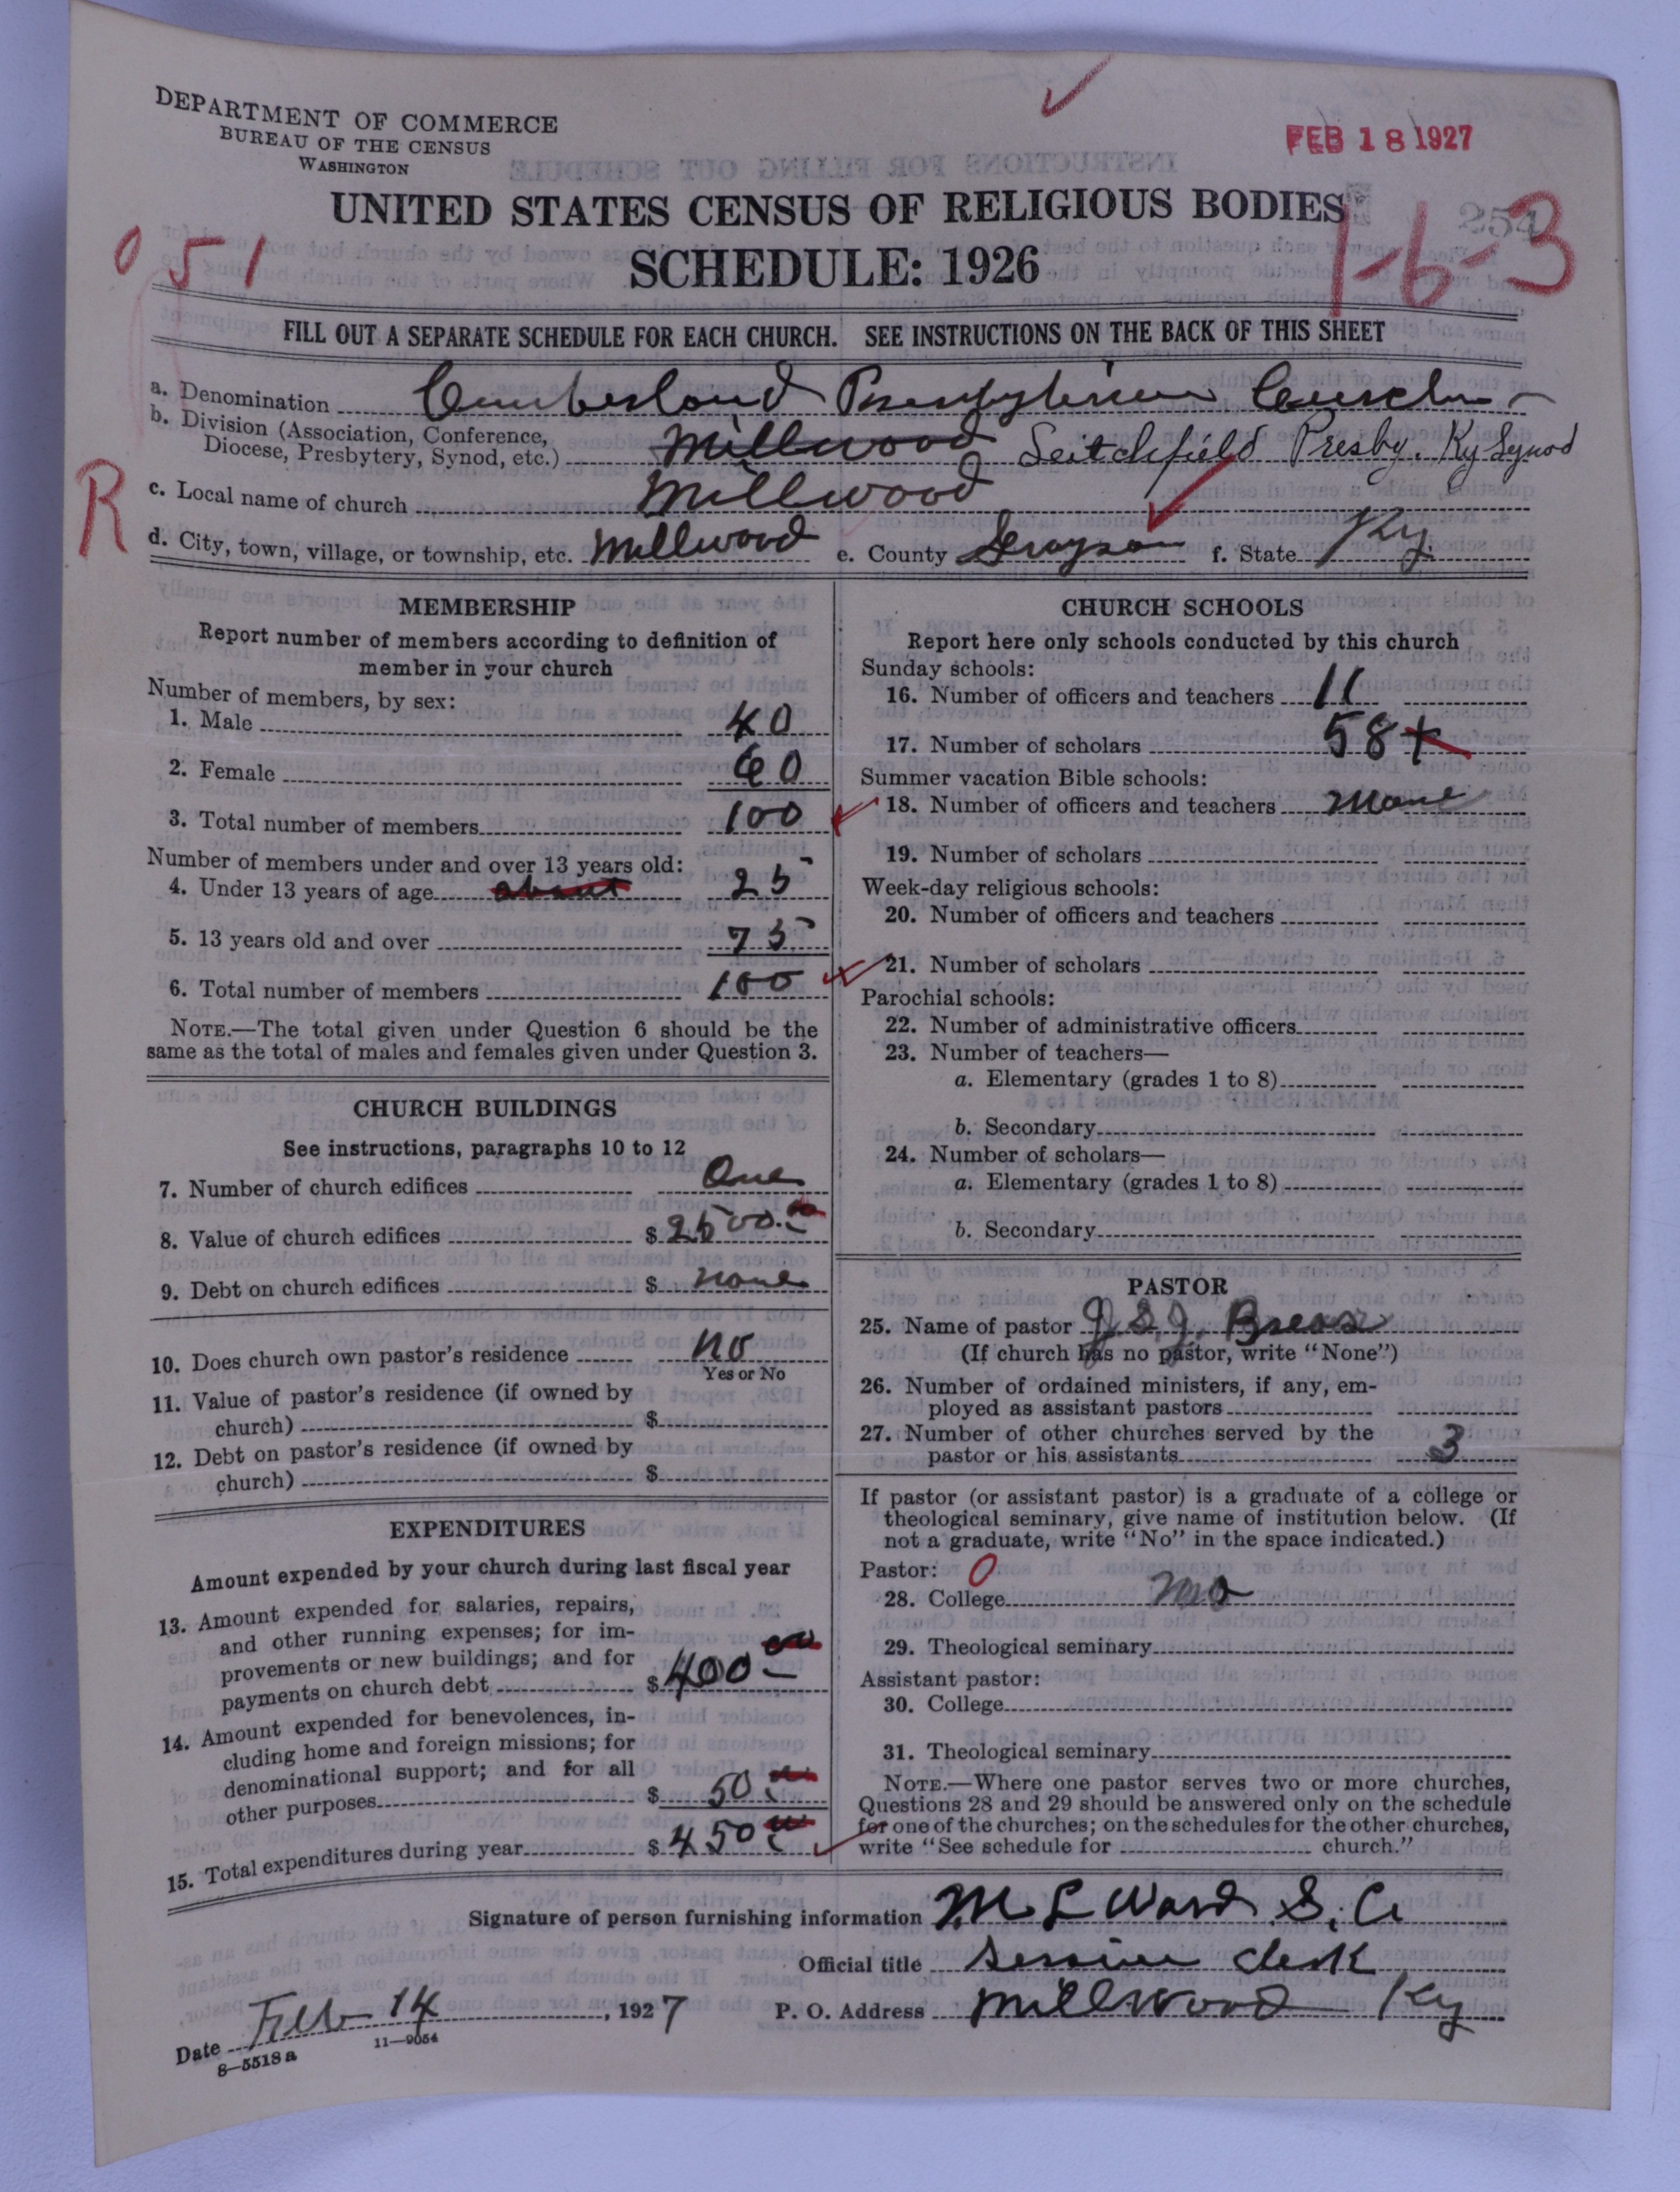 DEPARTMENT OF COMMERCE
BUREAU OF THE CENSUS
WASHINGTON
FEB 18 1927
UNITED STATES CENSUS OF RELIGIOUS BODIES
254
051
SCHEDULE: 1926
1-6-3
FILL OUT A SEPARATE SCHEDULE FOR EACH CHURCH. SEE INSTRUCTIONS ON THE BACK OF THIS SHEET
a. Denomination Cumberland Presbyterian Church
b. Division (Association, Conference,
Diocese, Presbytery, Synod, etc.) Millwood Leitchfield Presby. Ky Synod
R
c. Local name of church Millwood
d. City, town, village, or township, etc. Millwood e. County Grayson f. State Ky.
MEMBERSHIP
Report number of members according to definition of
member in your church
Number of members, by sex:
1. Male 40
2. Female 60
3. Total number of members 100
Number of members under and over 13 years old:
4. Under 13 years of age about 25
5. 13 years old and over 75
6. Total number of members 100
NOTE.—The total given under Question 6 should be the
same as the total of males and females given under Question 3.
CHURCH BUILDINGS
See instructions, paragraphs 10 to 12
7. Number of church edifices One
8. Value of church edifices $ 2500.00
9. Debt on church edifices $ none
10. Does church own pastor's residence no
Yes or No
11. Value of pastor's residence (if owned by
church) $
12. Debt on pastor's residence (if owned by
church) $
EXPENDITURES
Amount expended by your church during last fiscal year
13. Amount expended for salaries, repairs,
and other running expenses; for im-
provements or new buildings; and for
payments on church debt $ 400 00
14. Amount expended for benevolences, in-
cluding home and foreign missions; for
denominational support; and for all
other purposes $ 50 00
15. Total expenditures during year $ 450 00
CHURCH SCHOOLS
Report here only schools conducted by this church
Sunday schools:
16. Number of officers and teachers 11
17. Number of scholars 58+
Summer vacation Bible schools:
18. Number of officers and teachers None
19. Number of scholars
Week-day religious schools:
20. Number of officers and teachers
21. Number of scholars
Parochial schools:
22. Number of administrative officers
23. Number of teachers—
a. Elementary (grades 1 to 8)
b. Secondary
24. Number of scholars—
a. Elementary (grades 1 to 8)
b. Secondary
PASTOR
25. Name of pastor J. S. J.
(If church has no pastor, write "None")
26. Number of ordained ministers, if any, em-
ployed as assistant pastors
27. Number of other churches served by the
pastor or his assistants 3
If pastor (or assistant pastor) is a graduate of a college or
theological seminary, give name of institution below. (If
not a graduate, write "No" in the space indicated.)
Pastor: 0
28. College no
29. Theological seminary
Assistant pastor:
30. College
31. Theological seminary
NOTE.—Where one pastor serves two or more churches,
Questions 28 and 29 should be answered only on the schedule
for one of the churches; on the schedules for the other churches,
write "See schedule for church."
Signature of person furnishing information M L Ward S. C.
Official title Session Clerk
Date Feb 14, 1927 P. O. Address Millwood Ky
8—5518 a 11—9054